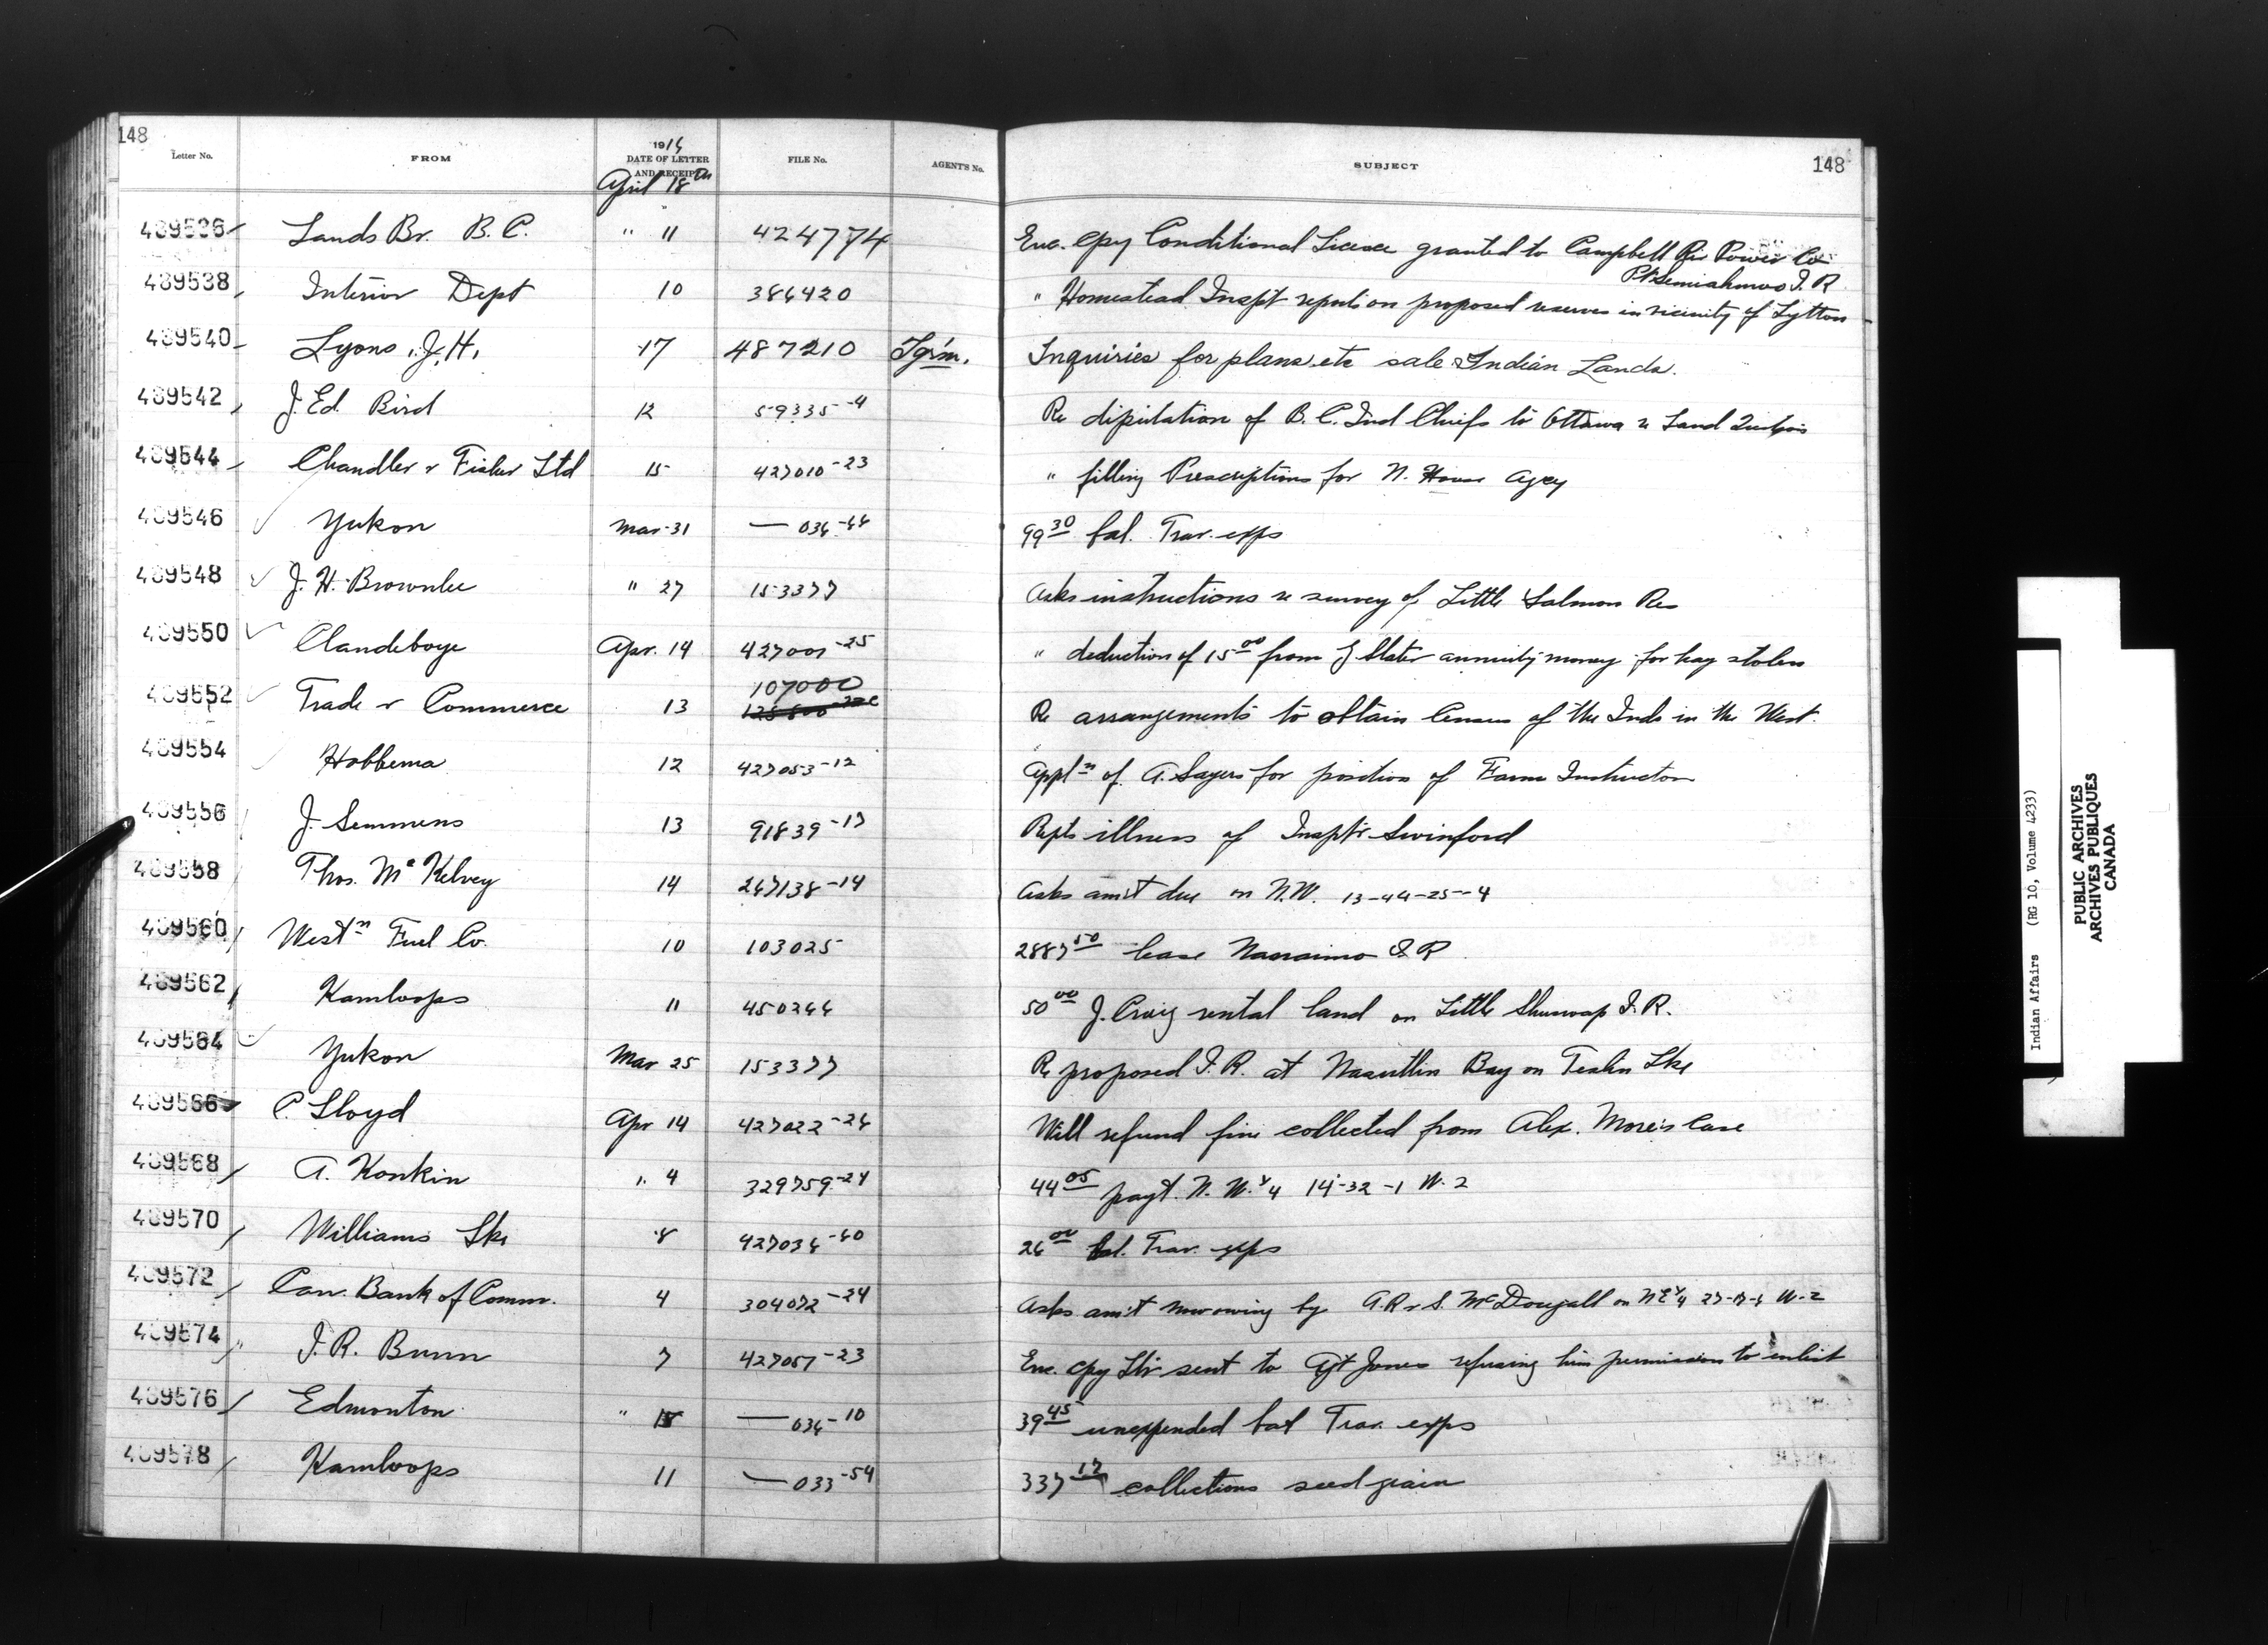 148
Letter No. FROM 1916 DATE OF LETTER AND RECEIPT FILE No. AGENT'S No. SUBJECT 148
April 18th
489536 Lands Br. B.C. " 11 424774 Enc. Cpy Conditional Licence granted to Campbell Riv Power Co
Pt Semiahmoo I.R.
489538 Interior Dept 10 386420 " Homestead Inspt report on proposed reserves in vicinity of Lytton
489540 Lyons, J.H. 17 487210 Tgrm. Inquiries for plans etc sale Indian Lands.
489542 J. Ed. Bird 12 59335-4 Re diputation of B.C. Ind Chiefs to Ottawa re Land
489544 Chandler & Fisher Ltd 15 427010-23 " filling Prescriptions for N. House Agcy
489546 Yukon Mar 31 — 036-44 99 30 bal. Trav. exps
489548 J. H. Brownlee " 27 153377 Asks instructions re survey of Little Salmon Res
489550 Clandeboye Apr. 14 427001-25 " deduction of 15 00 from J Slater annuity money for hay stolen
489552 Trade & Commerce 13 107000 Re arrangements to obtain Census of the Inds in the West.
489554 Hobbema 12 427053-12 Appln of A. Sayers for position of Farm Instructor
489556 J. Semmens 13 91839-17 Repts illness of Inspt'r Swinford
489558 Thos. McKelvey 14 247138-14 Asks am't due on N.W. 13-44-25-4
489560 Westn Fuel Co. 10 103025 2887 50 lease Nanaimo I R
489562 Kamloops 11 450244 50 00 J. Craig rental land on Little Shuswap I.R.
489564 Yukon Mar 25 153377 Re proposed I.R. at Nasutlin Bay on Teslin Lke
489566 C. Lloyd Apr 14 427022-26 Will refund fine collected from Alex. More's Case
489568 A. Konkin " 4 329759-24 44 05 payt. N.W. 1/4 14-32-1 W. 2
489570 Williams Lke 8 427036-40 26 00 bal. Trav. exps
489572 Can. Bank of Comm. 4 304072-24 Asks am't now owing by A.R & S. McDougall on NE 1/4 W-2
489574 J. R. Bunn 7 427057-23 Enc. cpy ltr sent to Agt Jones refusing him permission to enlist
489576 Edmonton " 15 — 036-10 39 45 unexpended bal Trav. exps
489578 Kamloops 11 — 033-54 337 17 collections seed grain
Indian Affairs (RG 10, Volume 4233)
PUBLIC ARCHIVES
ARCHIVES PUBLIQUES
CANADA